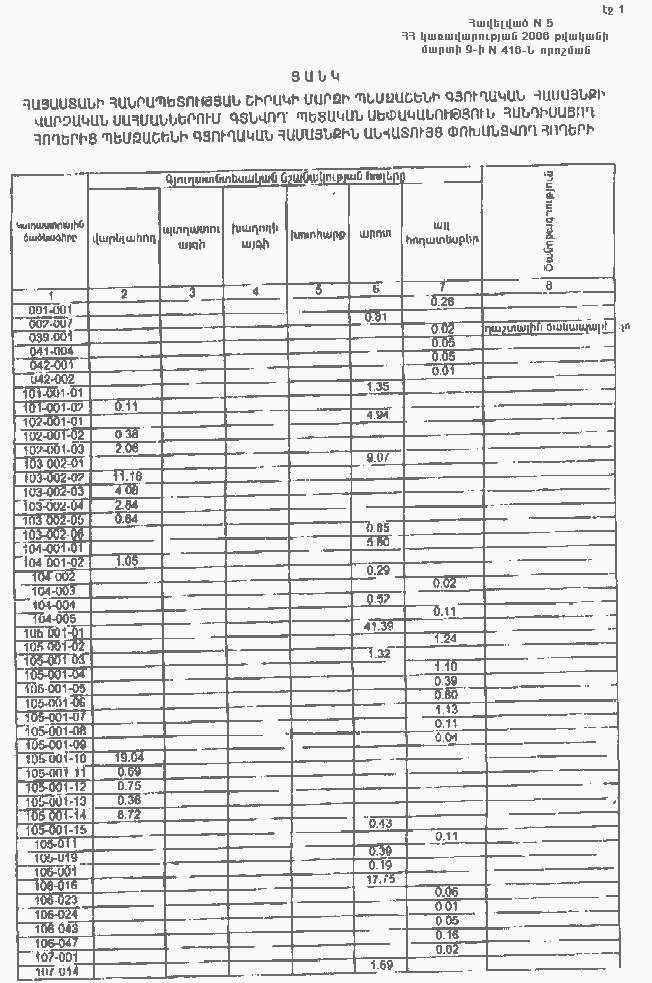 Էջ 1
Հավելված N 5
ՀՀ կառավարության 2006 թվականի
մարտի 9-ի N 416-Ն որոշման
ՑԱՆԿ
ՀԱՅԱՍՏԱՆԻ ՀԱՆՐԱՊԵՏՈՒԹՅԱՆ ՇԻՐԱԿԻ ՄԱՐԶԻ ՊԵՄԶԱՇԵՆԻ ԳՅՈՒՂԱԿԱՆ ՀԱՄԱՅՆՔԻ
ՎԱՐՉԱԿԱՆ ՍԱՀՄԱՆՆԵՐՈՒՄ ԳՏՆՎՈՂ՝ ՊԵՏԱԿԱՆ ՍԵՓԱԿԱՆՈՒԹՅՈՒՆ ՀԱՆԴԻՍԱՑՈՂ
ՀՈՂԵՐԻՑ ՊԵՄԶԱՇԵՆԻ ԳՅՈՒՂԱԿԱՆ ՀԱՄԱՅՆՔԻՆ ԱՆՀԱՏՈՒՅՑ ՓՈԽԱՆՑՎՈՂ ՀՈՂԵՐԻ
Կադաստրային ծածկագիրը
Գյուղատնտեսական նշանակության հողերը
Ծանոթագրություն
վարելահող պտղատու այգի խաղողի այգի խոտհարք արոտ այլ հողատեսքեր
1 2 3 4 5 6 7 8
001-001 0.26
002-007 0.81
039-001 0.02 դաշտային ճանապարհ
041-004 0.05
042-001 0.05
042-002 0.01
101-001-01 1.35
101-001-02 0.11
102-001-01 4.94
102-001-02 0.38
102-001-03 2.06
103-002-01 9.07
103-002-02 11.16
103-002-03 4.06
103-002-04 2.84
103-002-05 0.64
103-002-06 0.85
104-001-01 5.60
104-001-02 1.05
104-002 0.29
104-003 0.02
104-004 0.52
104-005 0.11
105-001-01 41.39
105-001-02 1.24
105-001-03 1.32
105-001-04 1.10
105-001-05 0.39
105-001-06 0.60
105-001-07 1.13
105-001-08 0.11
105-001-09 0.04
105-001-10 19.04
105-001-11 0.69
105-001-12 0.75
105-001-13 0.36
105-001-14 8.72
105-001-15 0.43
105-011 0.11
105-019 0.39
106-001 0.19
106-016 17.75
106-023 0.06
106-024 0.01
106-043 0.05
106-047 0.16
107-001 0.02
107-014 1.69